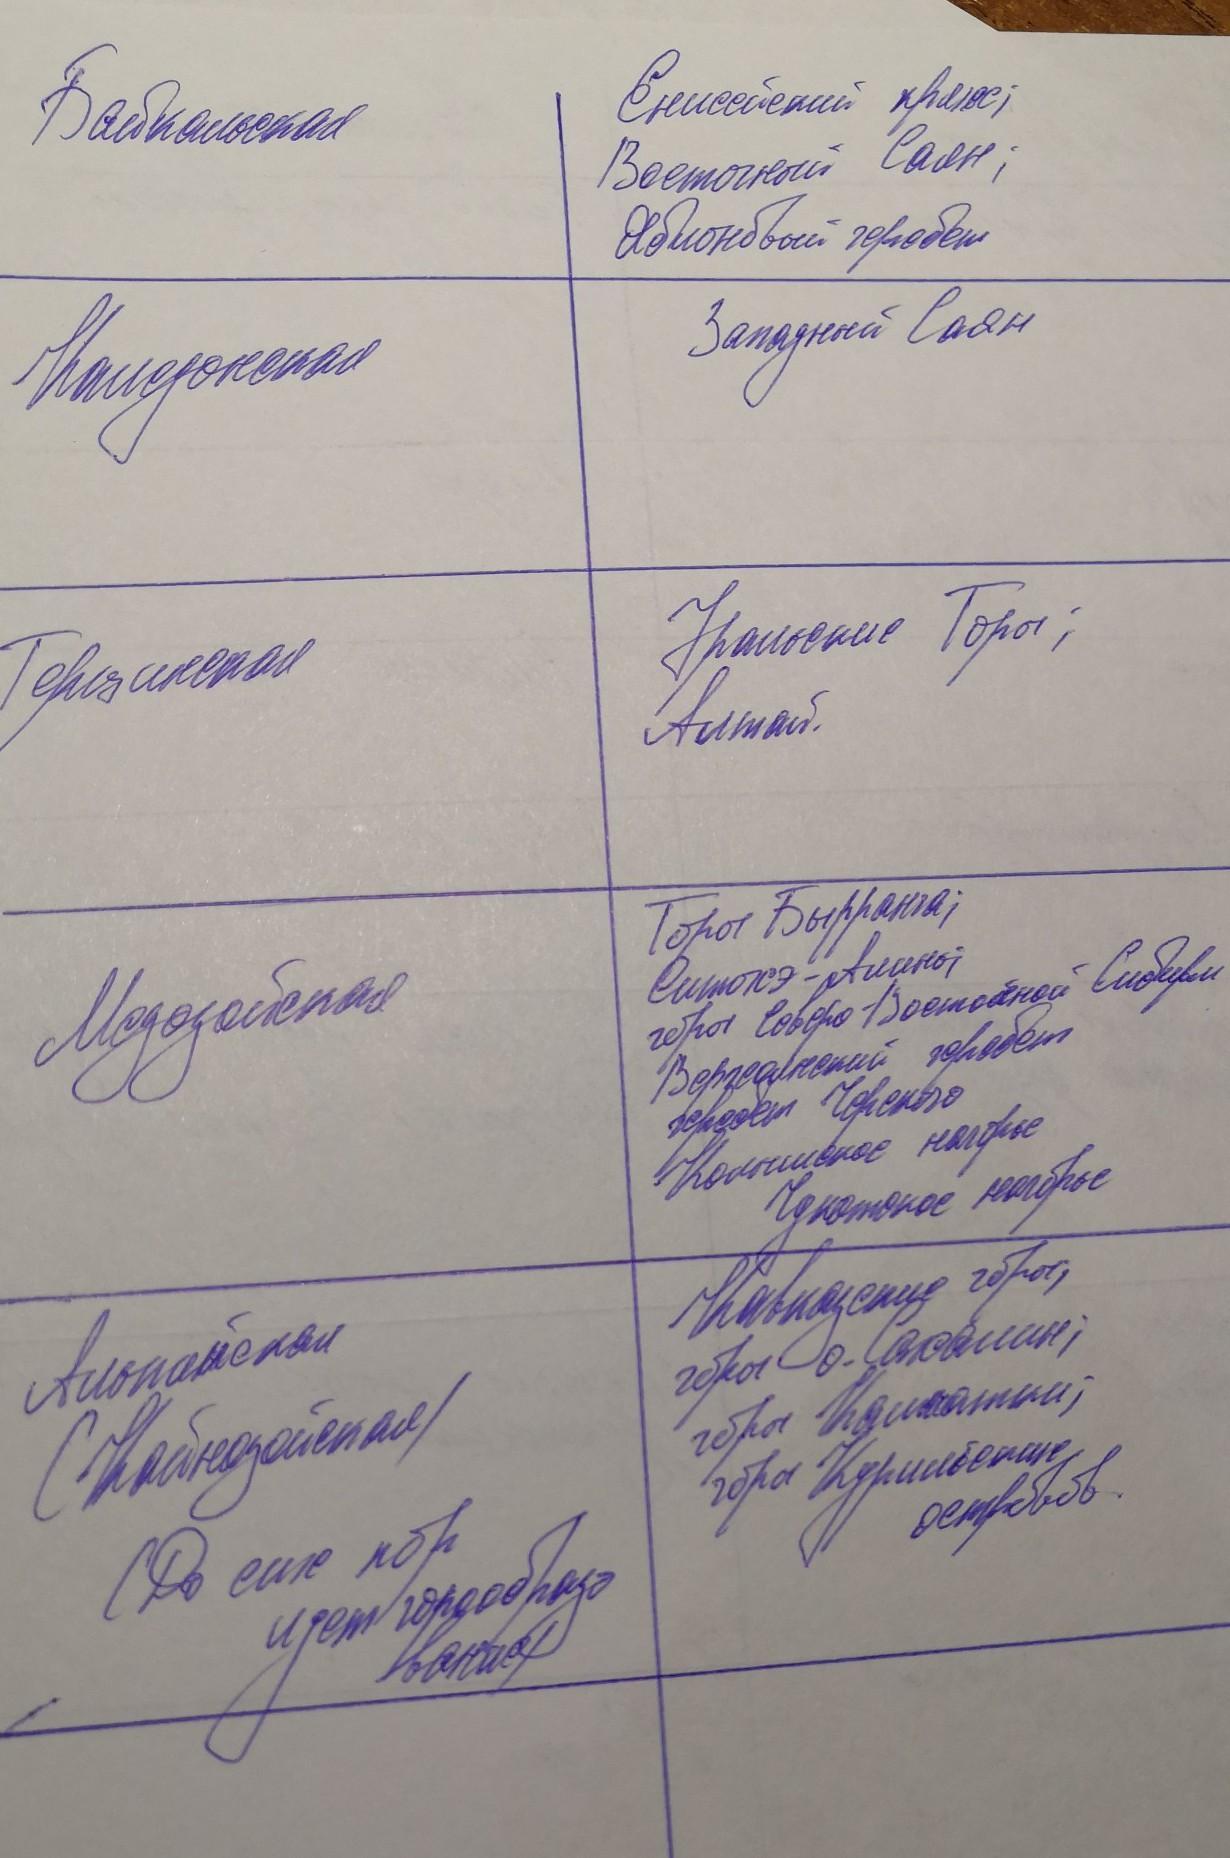 Байкальская
Енисейский кряж;
Восточный Саян;
Яблоновый хребет
Каледонская
Западный Саян
Герцинская
Уральские Горы;
Алтай.
Мезозойская
Горы Бырранга;
Сихотэ-Алинь;
горы Северо-Восточной Сибири
Верхоянский хребет
хребет Черского
Колымское нагорье
Чукотское нагорье
Альпийская
(Кайнозойская)
(До сих пор
идет горообразо
вание)
Кавказские горы;
горы о. Сахалин;
горы Камчатки;
горы Курильских
островов.